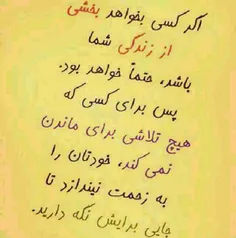 اگر کسی بخواهد بخشی
از زندگی شما
باشد، حتماً خواهد بود.
پس برای کسی که
هیچ تلاشی برای ماندن
نمی کند، خودتان را
به زحمت نیندازد تا
جایی برایش نگه دارید.